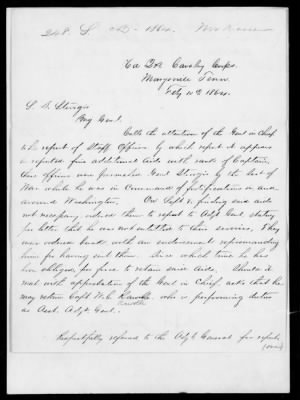 248 S (CD) 1864.
Hd Qrs Cavalry Corps.
Maryville Tenn.
Feby 11th 1864.
S. D. Sturgis
Brig Genl.
Calls the attention of the Genl in Chief
to the report of Staff Officers by which report it appears
he reported five additional Aids with rank of Captain,
These officers were furnished Genl Sturgis by the Sect of
War while he was in Command of fortifications in and
around Washington. On Sept & finding said aids
not necessary, ordered them to report to Adjt Genl stating
per letter that he was not entitled to their services. They
were ordered back with an endorsement reprimanding
him for having sent them. Since which time he has
been obliged per force to retain said Aids. Should it
meet with approbation of the Genl in Chief, asks that he
may retain Capt W. C. Rawolle. who is performing duties
Rawolle
as Asst. Adjt. Genl.
Respectfully referred to the Adjt General for report.
(over)